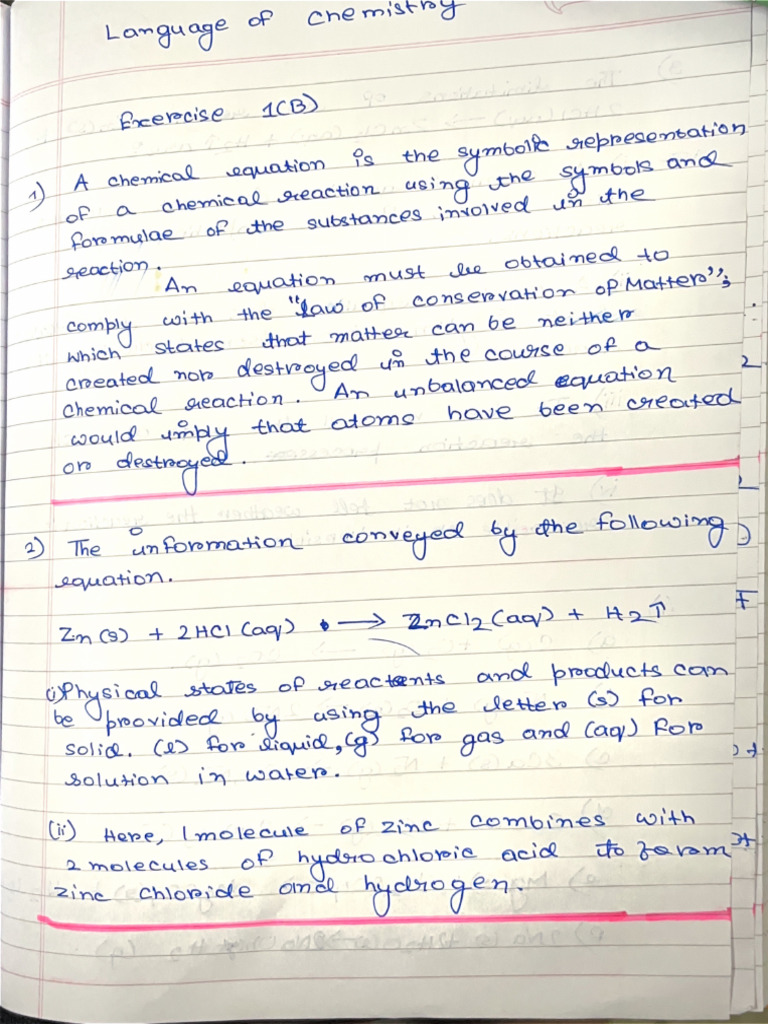 Language of chemistry
Exercise 1(B)
1) A chemical equation is the symbolic representation
of a chemical reaction using the symbols and
formulae of the substances involved in the
reaction.
An equation must be obtained to
comply with the "law of conservation of Matter";
which states that matter can be neither
created nor destroyed in the course of a
chemical reaction. An unbalanced equation
would imply that atoms have been created
or destroyed.
2) The information conveyed by the following
equation.
Zn (s) + 2HCl (aq) → ZnCl2 (aq) + H2↑
(i) Physical states of reactents and products can
be provided by using the letter (s) for
solid. (l) for liquid, (g) for gas and (aq) for
solution in water.
(ii) Here, 1 molecule of zinc combines with
2 molecules of hydrochloric acid to form
zinc chloride and hydrogen.